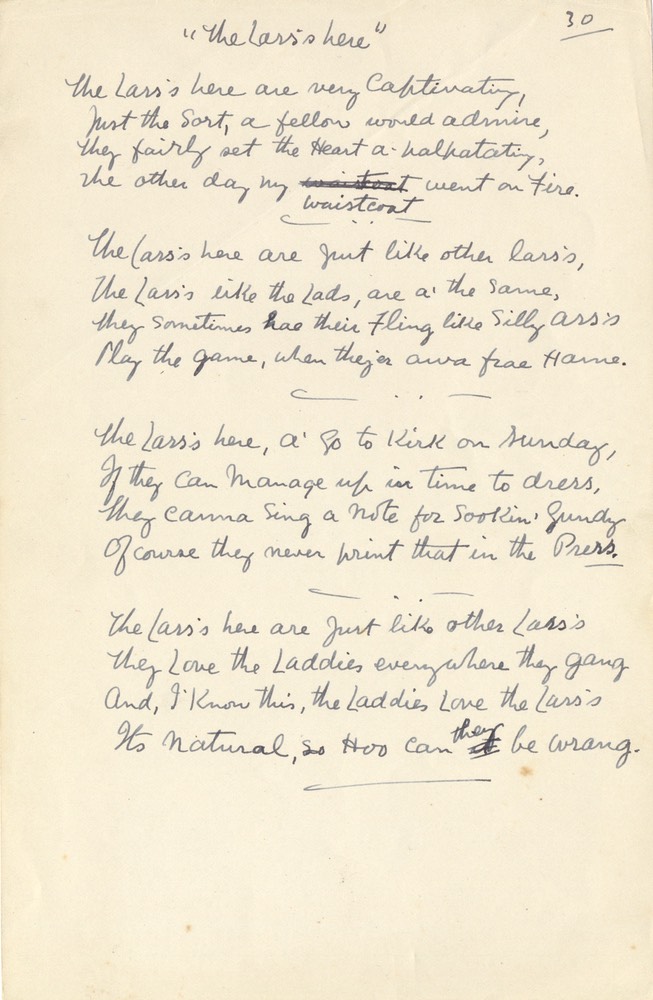 30
"The Lass's here"
The Lass's here are very Captivating,
Just the Sort, a fellow would admire,
They fairly set the Heart a-palpatating,
The other day my waistcoat went on Fire.
waistcoat
The Lass's here are Just like other lass's,
The Lass's like the Lads, are a' the Same,
They Sometimes hae their Fling like Silly Ass's
Play the game, when they'er awa frae Hame.
The Lass's here, a' Go to Kirk on Sunday,
If they Can Manage up in time to dress,
They Canna Sing a Note for Sookin' Gundy
Of course they never print that in the Press.
The Lass's here are Just like other Lass's
They Love the Laddies everywhere they gang
And, I Know this, the Laddies Love the Lass's
Its Natural, so Hoo Can they be wrang.